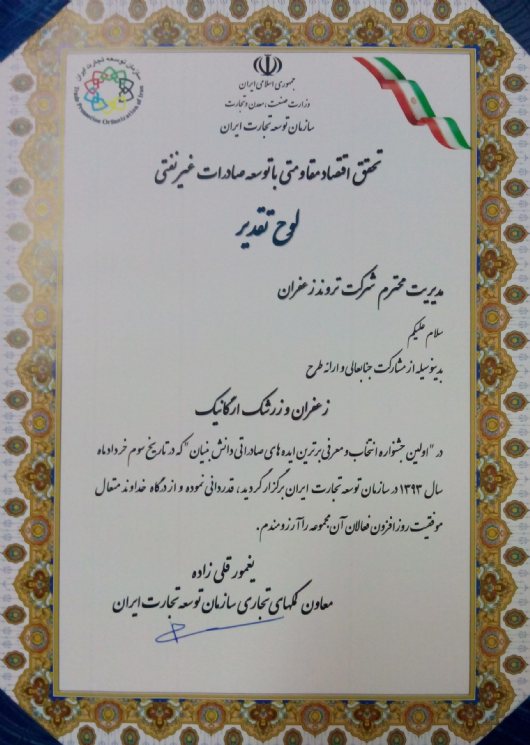 سازمان توسعه تجارت ایران
Trade Promotion Organization of Iran
جمهوری اسلامی ایران
وزارت صنعت، معدن و تجارت
سازمان توسعه تجارت ایران
تحقق اقتصاد مقاومتی با توسعه صادرات غیر نفتی
لوح تقدیر
مدیریت محترم شرکت تروند زعفران
سلام علیکم
بدینوسیله از مشارکت جنابعالی و ارائه طرح
زعفران و زرشک ارگانیک
در "اولین جشنواره انتخاب و معرفی برترین ایده های صادراتی دانش بنیان" که در تاریخ سوم خرداد ماه
سال ۱۳۹۳ در سازمان توسعه تجارت ایران برگزار گردید، قدردانی نموده و از درگاه خداوند متعال
موفقیت روز افزون فعالان آن مجموعه را آرزومندم.
یغمور قلی زاده
معاون کمکهای تجاری سازمان توسعه تجارت ایران